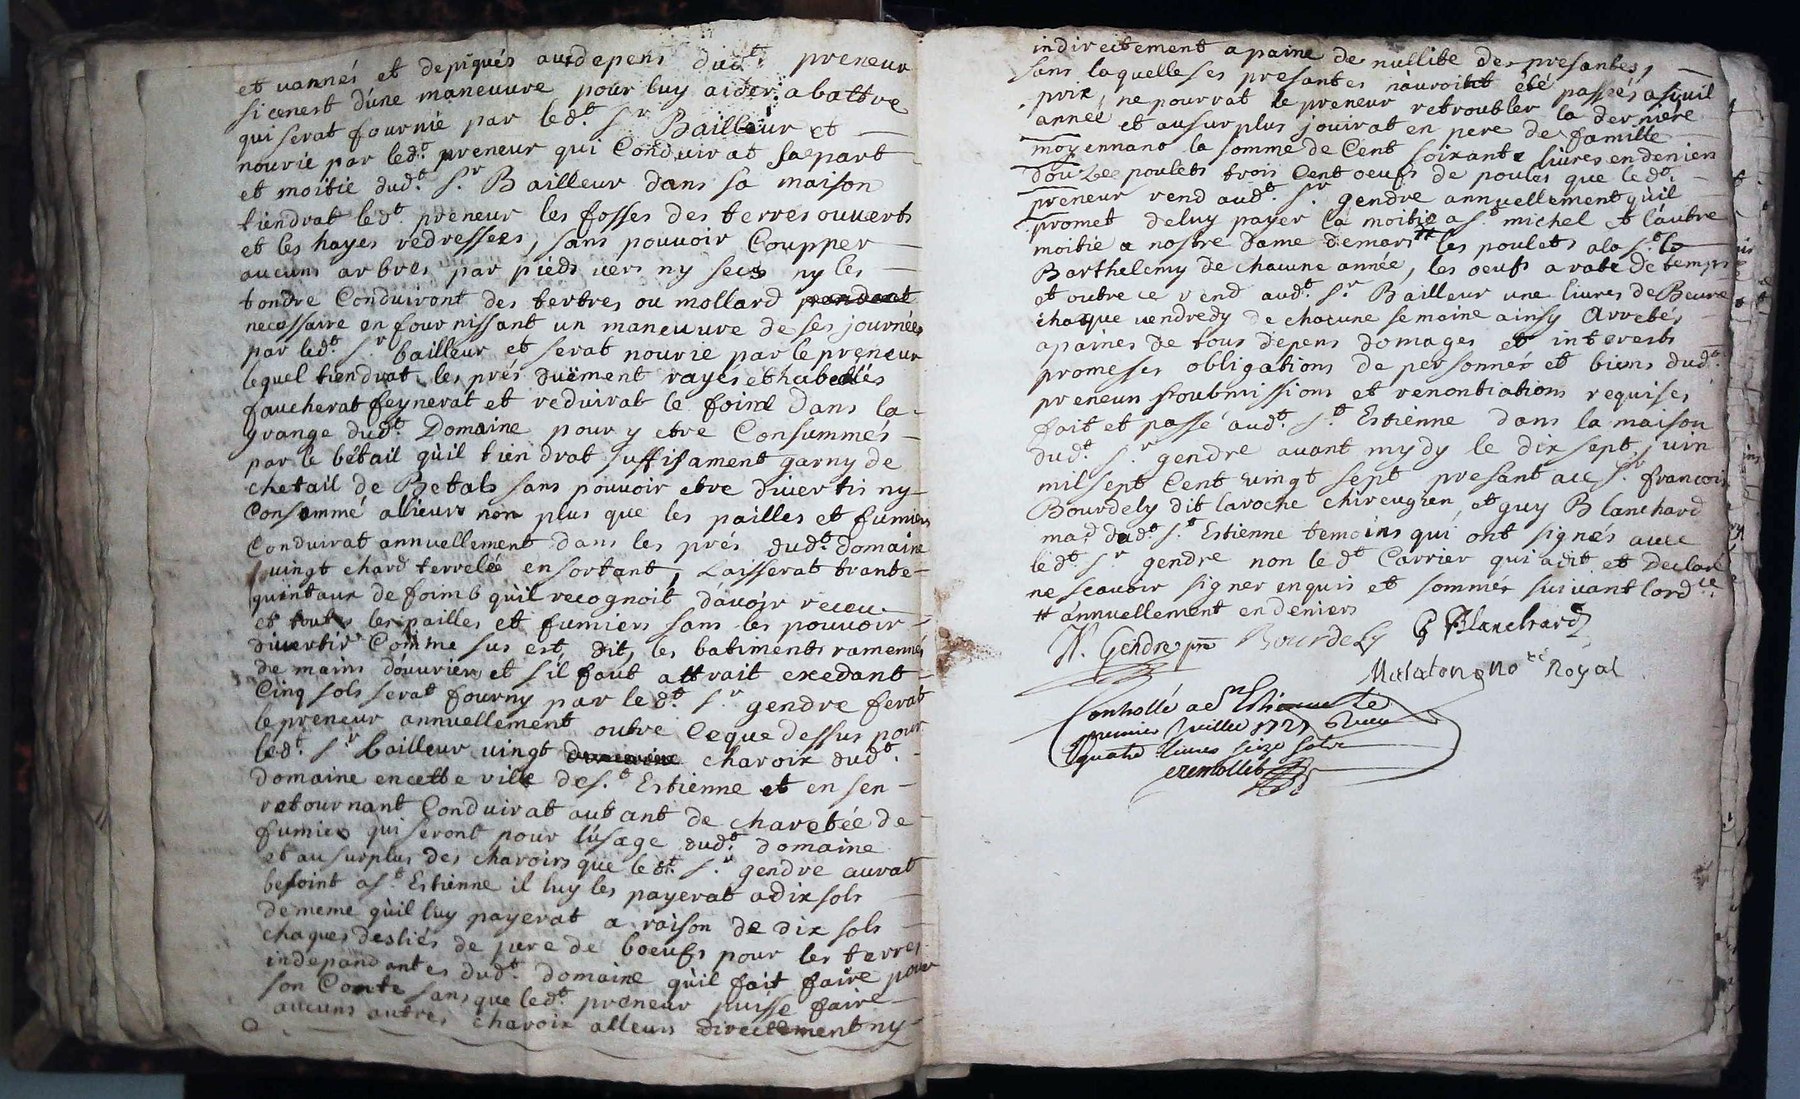 et vannés et depiqués aux depens dud.t preneur
si cenest dune maneuvre pour luy aider a battre
qui serat fournie par led.t s.r Bailleur et
nourie par led.t preneur qui Conduirat sa part
et moitie dud.t s.r Bailleur dans sa maison
tiendrat led.t preneur les fosses des terres ouverts
et les hayes redressees, sans pouvoir Coupper
aucuns arbres par pieds vers ny secs ny les
tondre Conduiront des tertres ou mollard
necessaire en fournissant un maneuvre de ses journées
par led.t s.r bailleur et serat nourie par le preneur
lequel tiendrat les prés duëment rayés et
faucherat feynerat et reduirat le foind dans la
grange dud.t Domaine pour y etre Consummés
par le bétail qùil tiendrat suffisament garny de
chetail de Betals sans pouvoir etre divertis ny
Consommé allieurs non plus que les pailles et fumiers
Conduirat annuellement dans les prés dud.t domaine
vingt chard terrelée en sortant, Laisserat trante
quintaux de foin qùil recognoit davoir receu
et touts les pailles et fumiers sans les pouvoir
divertir Comme sus est dit, les batiments ramennés
de mains douvriers et sil faut attrait exedant
Cinq sols serat fourny par led.t s.r gendre ferat
le preneur annuellement outre Ceque dessus pour
led.t s.r bailleur vingt charoix dud.t
domaine en cette ville de s.t Estienne et en sen
retournant Conduirat autant de charetée de
fumier qui seront pour lùsage dud.t domaine
et au surplus des charoirs que led.t s.r gendre aurat
besoint a s.t Estienne il luy les payerat a dix sols
de meme qùil luy payerat a raison de dix sols
chaques desliés de pere de boeufs pour les terres
independantes dud.t domaine qùil fait faire pour
son Conte sans que led.t preneur puisse faire
aucuns autres charoix alleurs directement ny
indirectement a paine de nullité des presantes,
sans laquelle ses presantes nàuroint été passées a suil
prix, ne pourrat le preneur retroubler la derniere
année et au surplus jouirat en pere de famille
moyennant la somme de Cent soixante livres en deniers
douzee poulets trois Cent oeufs de poules que led.t
preneur rend aud.t s.r gendre annuellement qùil
promet de luy payer la moitié a s.t michel et làutre
moitié a nostre dame de mars # les poulets a la s.t
Barthelemy de chacune année, les oeufs a rate de temps
et outre ce rend aud.t s.r Bailleur une livres de Beure
chaque vendredy de chacune semaine ainsy Arretés
a paines de tous depens domages et interests
promeses obligations de personnes et biens dud.t
preneur soubmissions et renontiations requises
fait et passé aud.t s.t Estienne dans la maison
dud.t s.r gendre avant mydy le dix sept juin
mil sept Cent vingt sept presant ace s.r francois
Bourdely dit laroche chireugien, et guy Blanchard
ma.d dud.t s.t Estienne temoins qui ont signés avec
led.t s.r gendre non led.t Carrier qui a dit et Declaré
ne scavoir signer enquis et sommés suivant lord.ce
# annuellement en deniers
Gendre Bourdely G Blanchard
no.re Royal
Controllé a S.t Estienne le
premier Juillet 1727 Receu
quatre livres seize sols